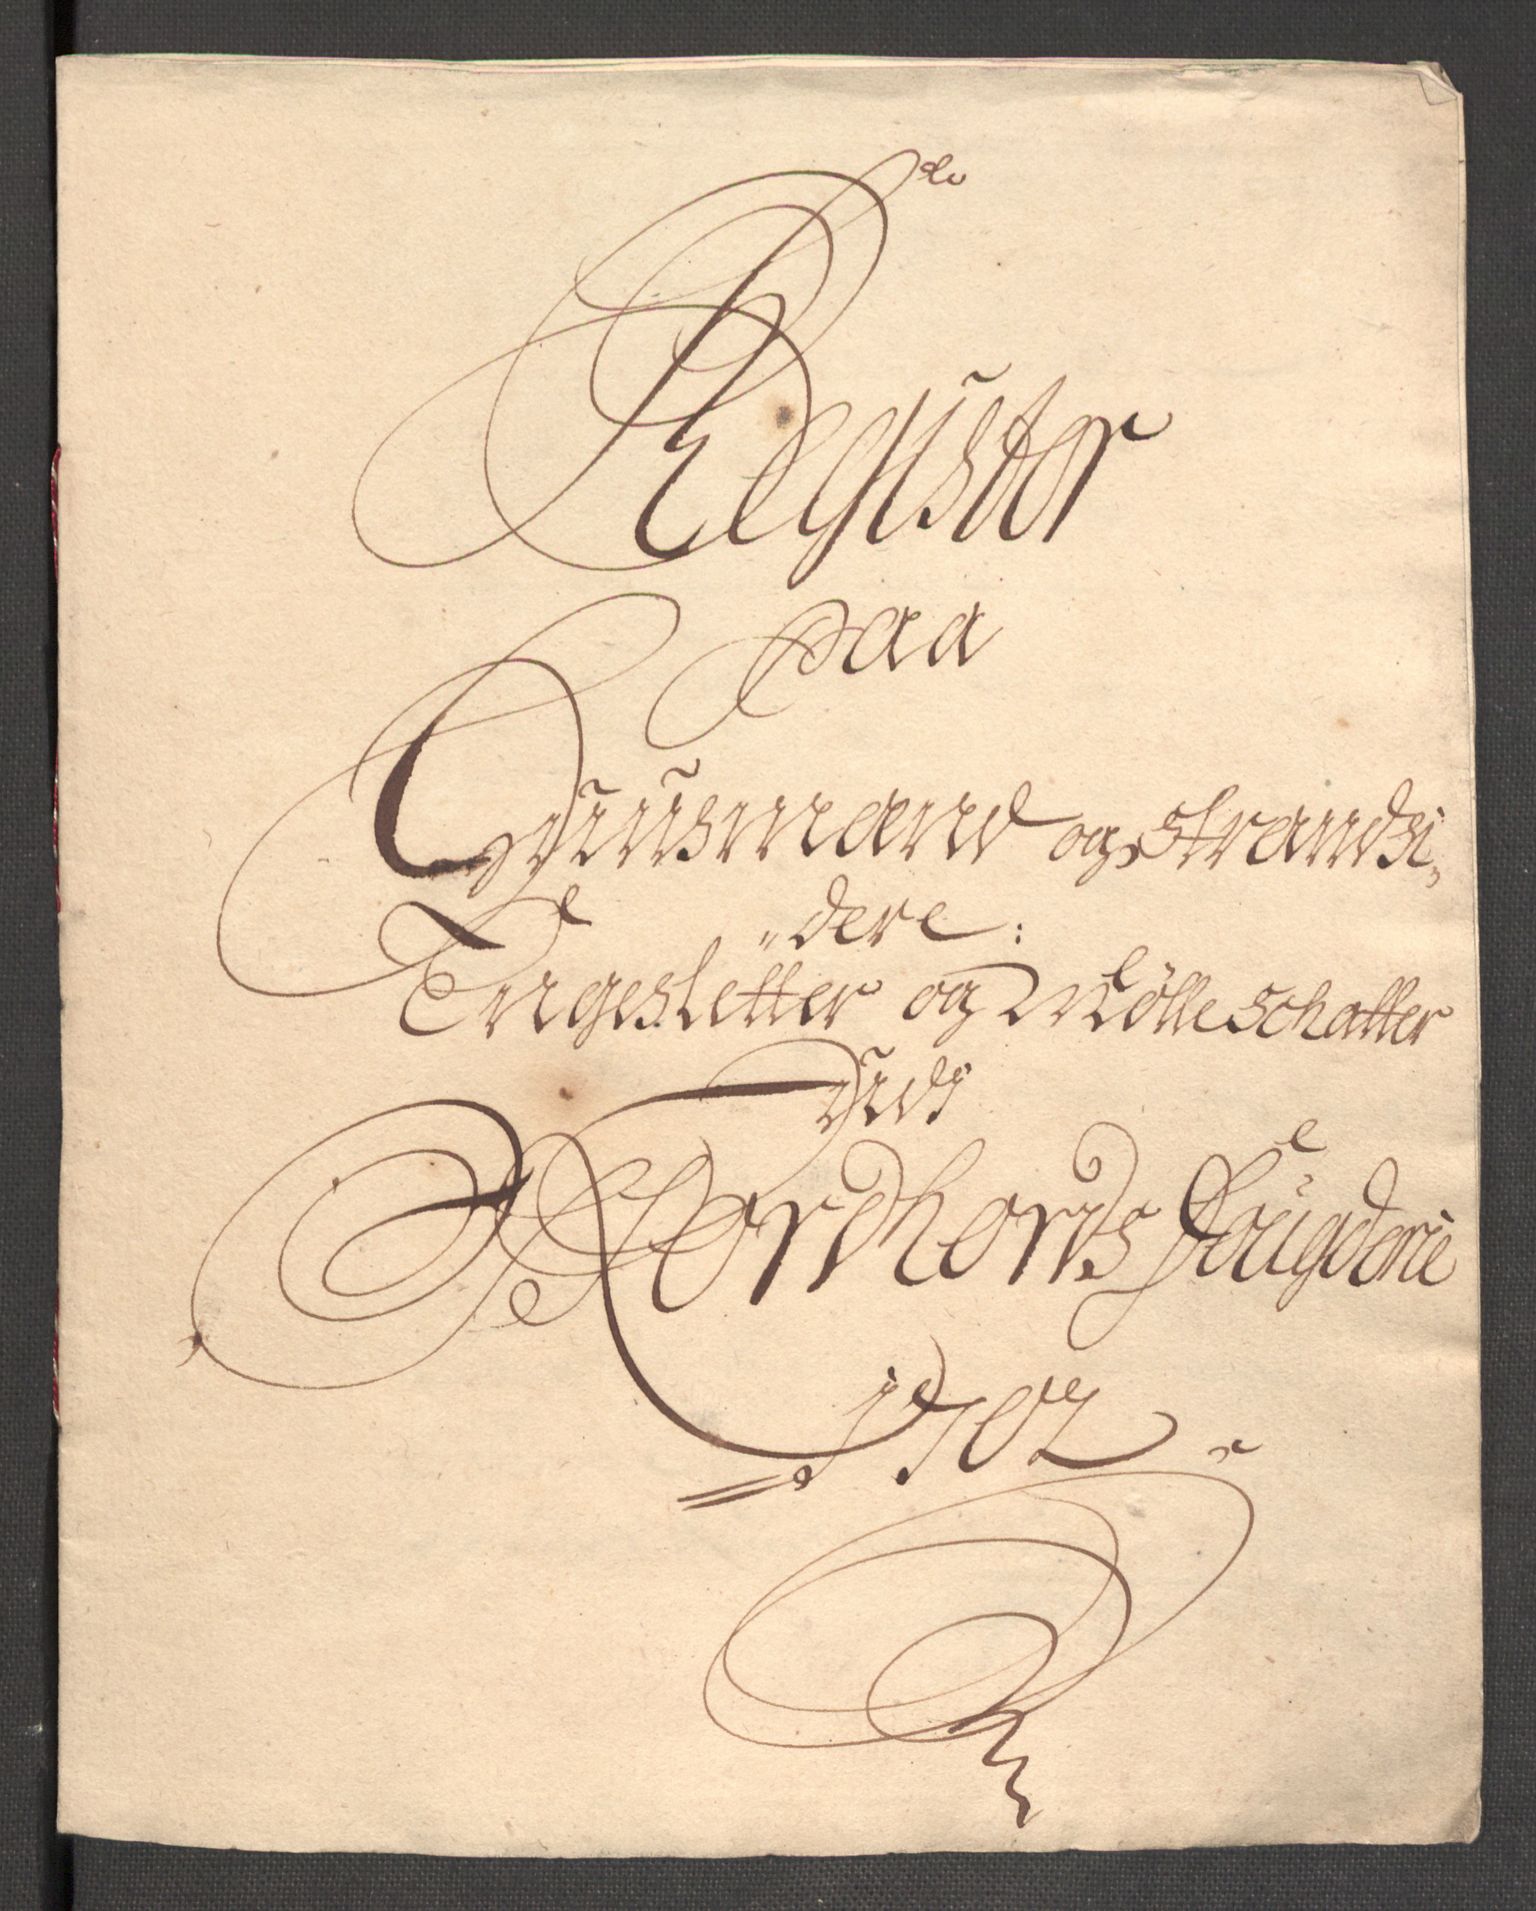 Register
paa
Huusmænd og Strandsi„
„dere:
Engesletter og Mölleschatter
udi
Nordhords fougderie
1702